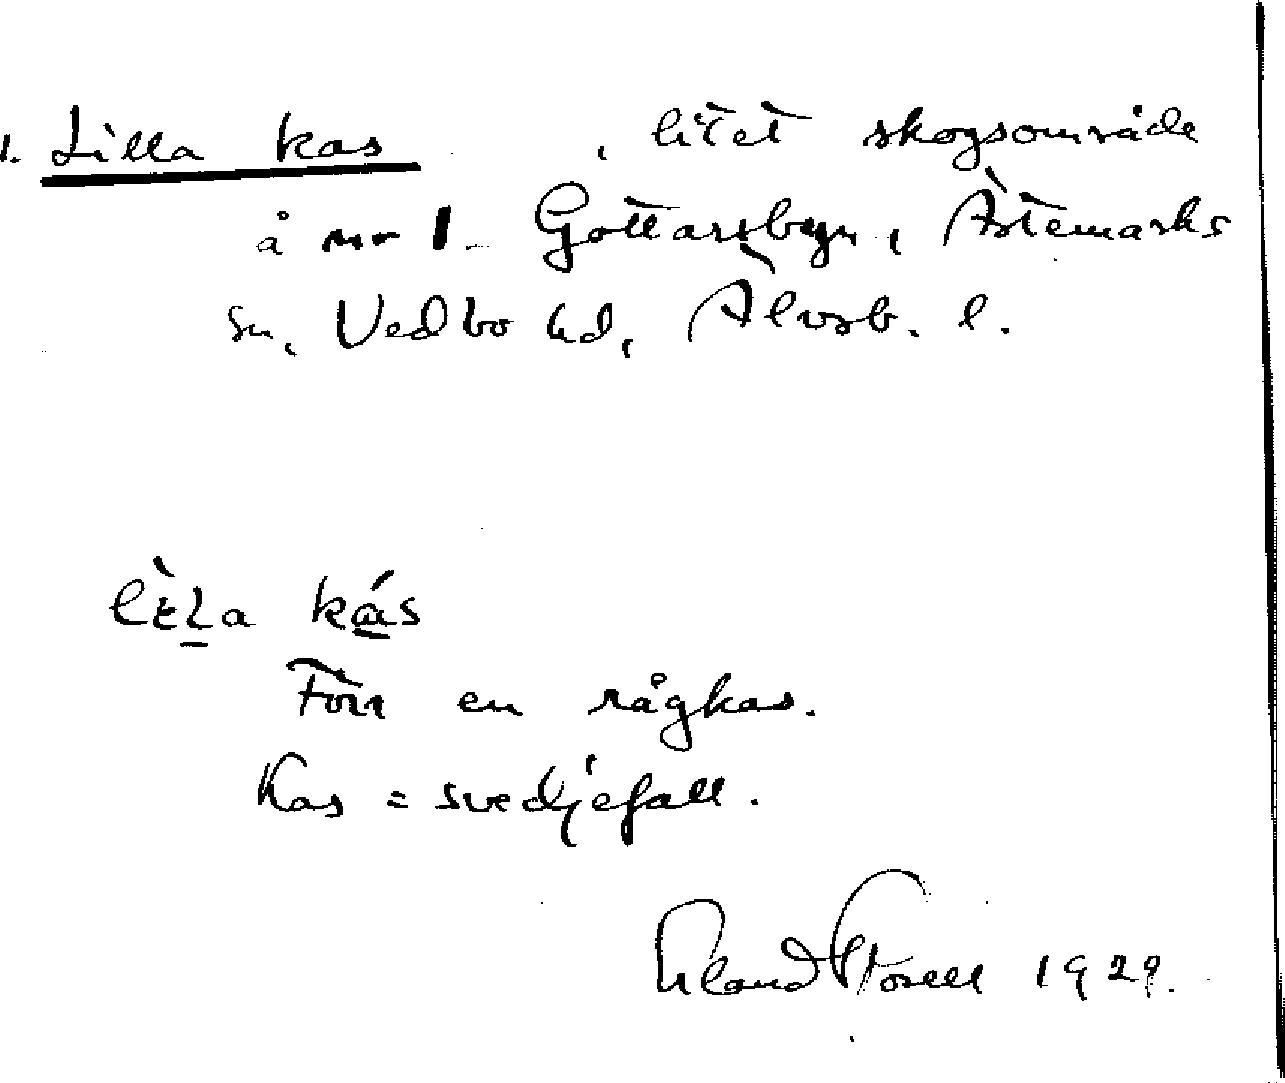 1. Lilla kas , litet skogsområde
å nr 1 Gottarsbyn, Ärtemarks
sn, Vedbo hd, Älvsb. l.
kás
Förr en rågkas.
Kas = svedjefall.
1929.